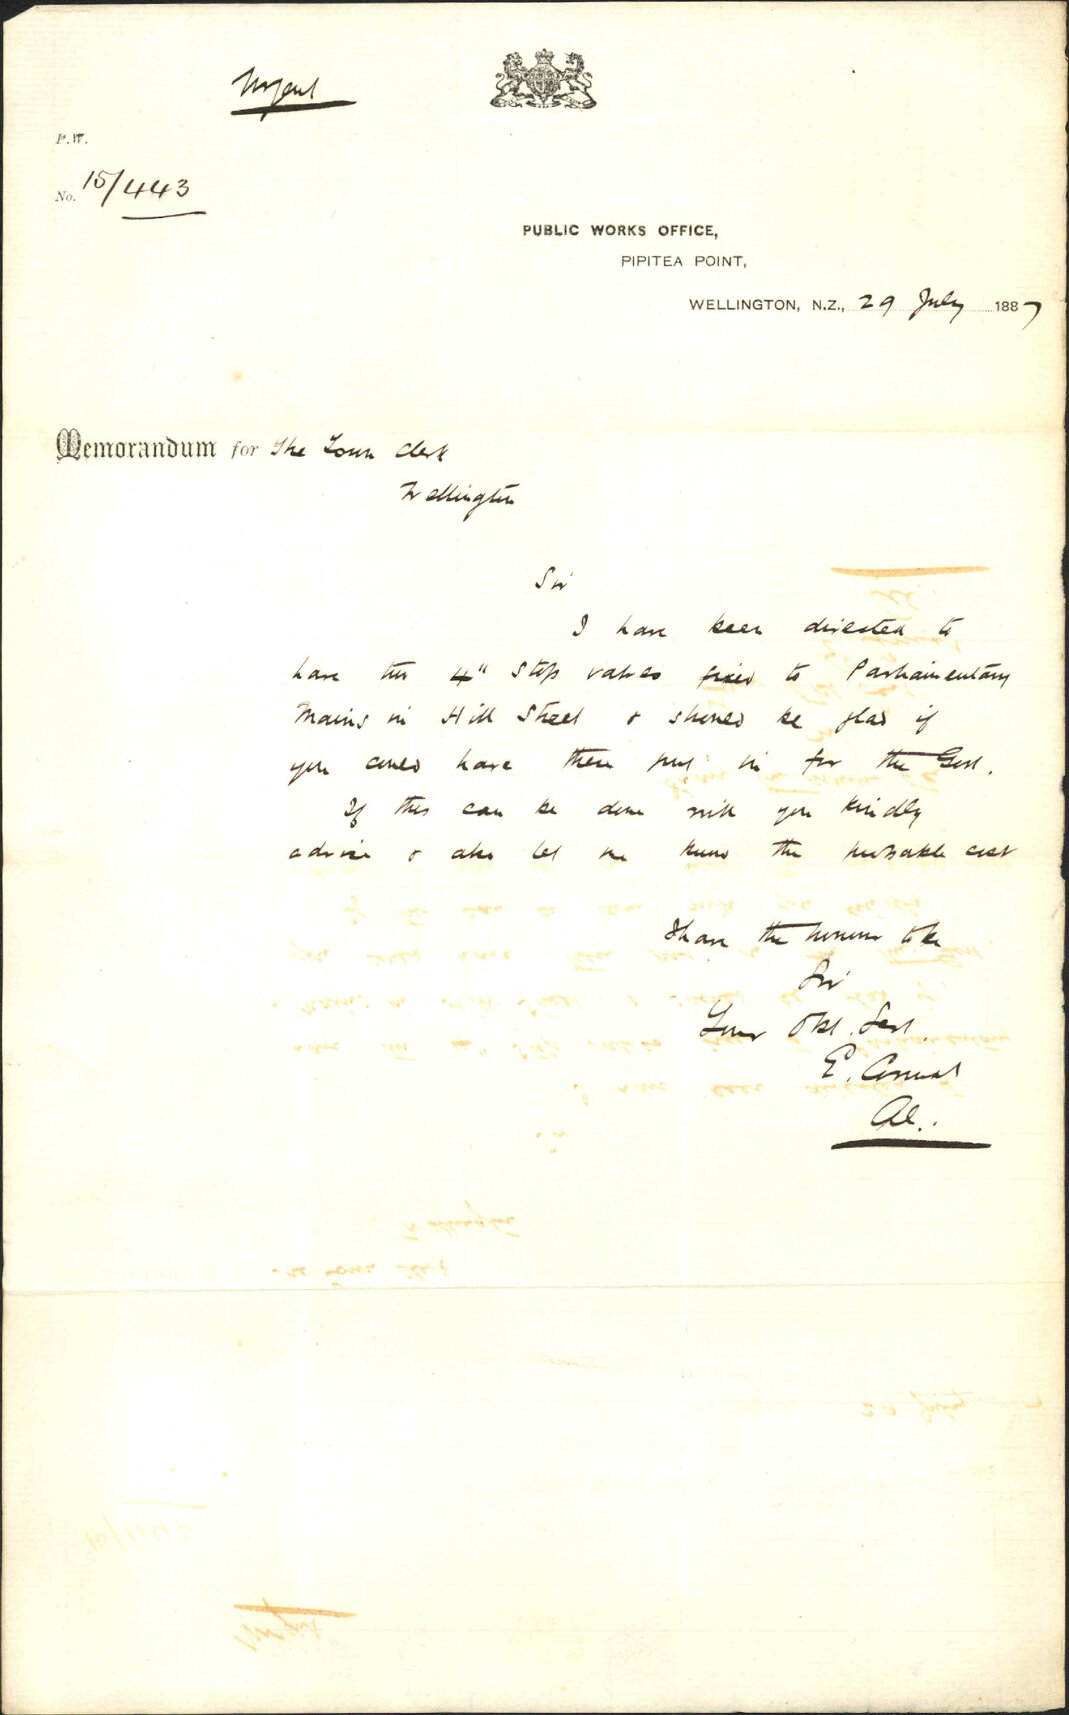 Urgent
P.W.
No. 15/443
PUBLIC WORKS OFFICE,
PIPITEA POINT,
WELLINGTON, N.Z., 29 July 1887
Memorandum for The Town Clerk
Wellington
Sir
I have been directed to
have two 4" Stop valves fixed to Parliamentary
Mains in Hill Street & should be glad if
you could have them put in for the Govt.
If this can be done will you kindly
advise & also let me know the probable cost
I have the honour to be
Sir
Your Obt. Servt.
E.